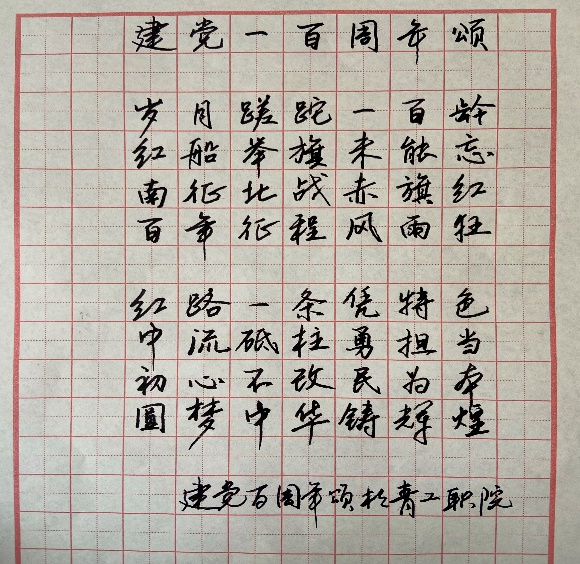 建党一百周年颂
岁月蹉跎一百龄
红船举旗未能忘
南征北战赤旗红
百年征程风雨狂
红路一条凭特色
中流砥柱勇担当
初心不改民为本
圆梦中华铸辉煌
建党百周年颂于青工职院